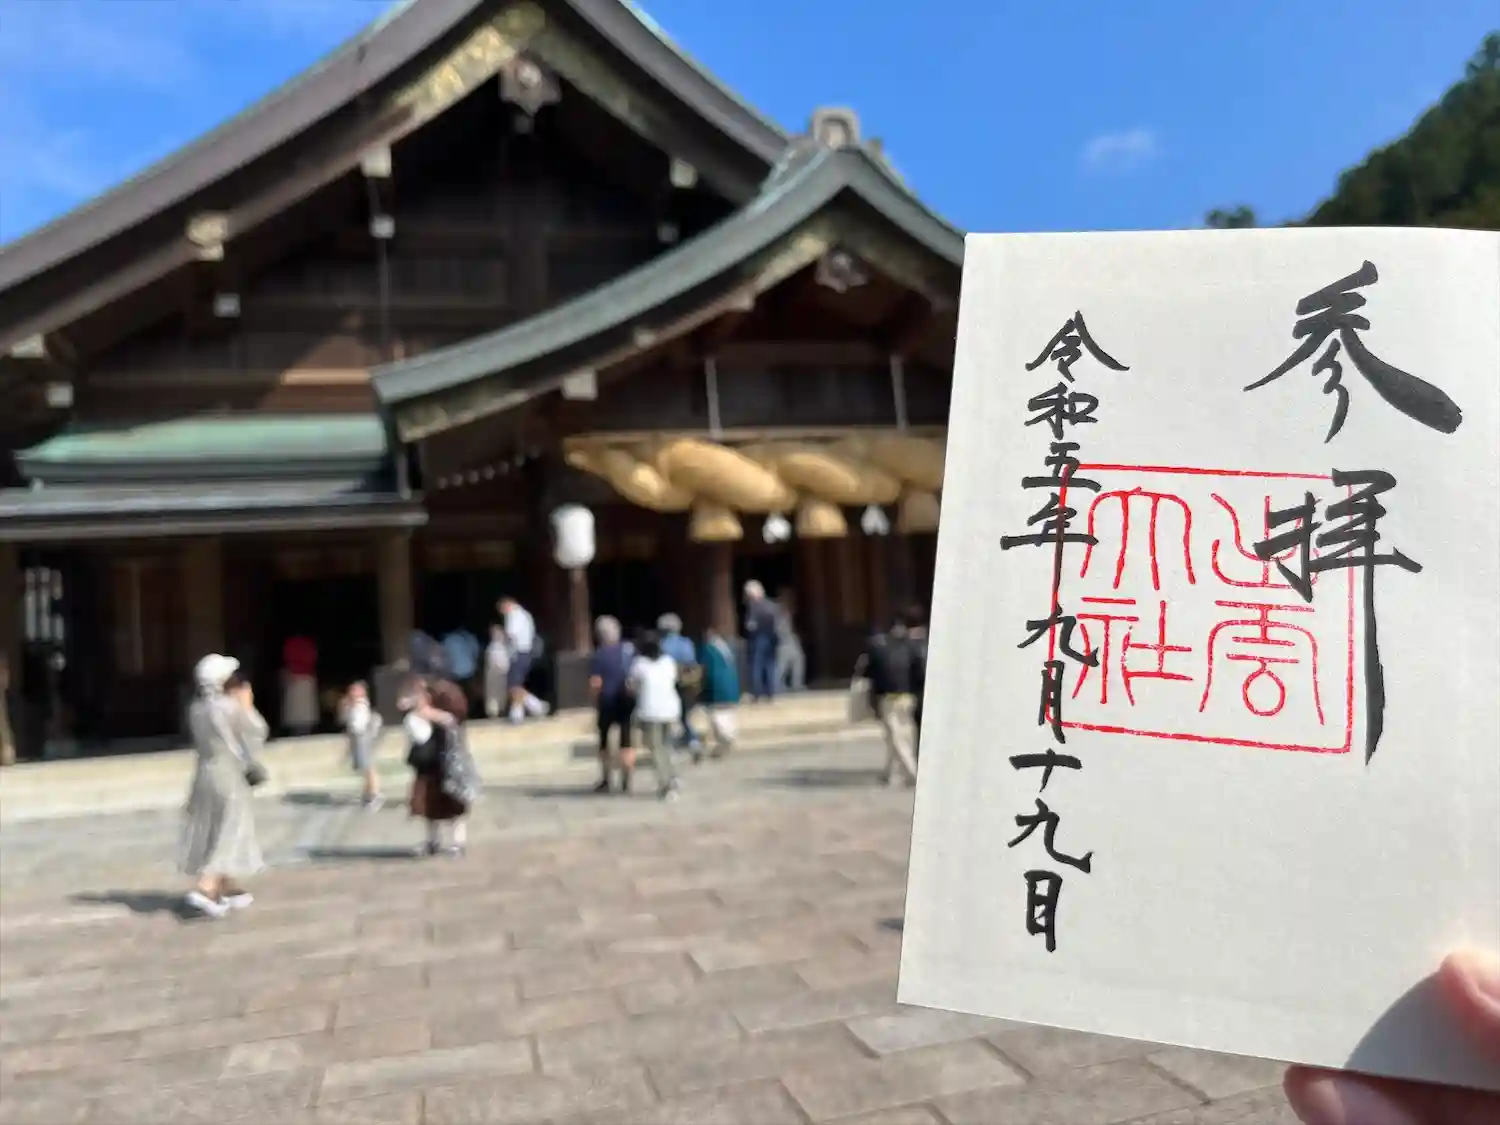 参拝
出雲
大社
令和五年九月十九日